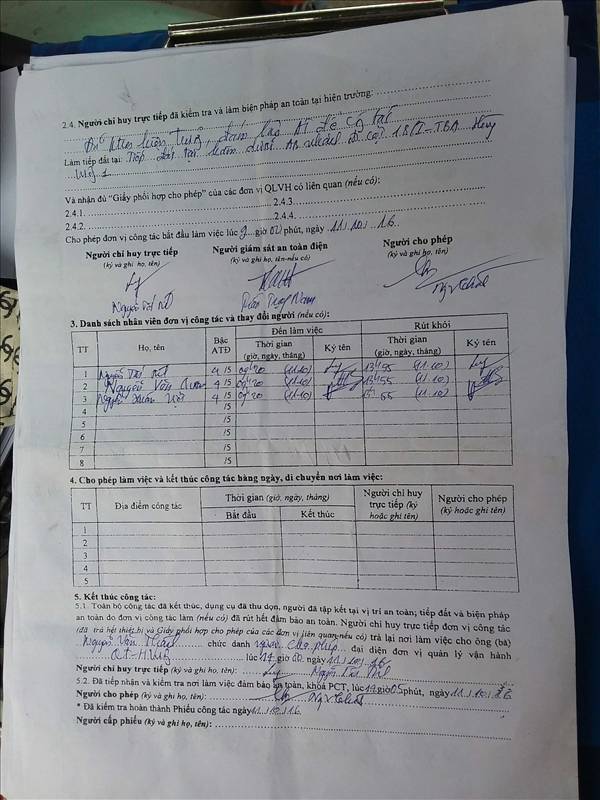 2.4. Người chỉ huy trực tiếp đã kiểm tra và làm biện pháp an toàn tại hiện trường:
Làm tiếp đất tại: Tiếp đất tại
Và nhận đủ “Giấy phối hợp cho phép” của các đơn vị QLVH có liên quan (nếu có):
2.4.1. 2.4.3.
2.4.2. 2.4.4.
Cho phép đơn vị công tác bắt đầu làm việc lúc 9 giờ 00 phút, ngày 11/10/16
Người chỉ huy trực tiếp Người giám sát an toàn điện Người cho phép
(ký và ghi họ, tên) (ký và ghi họ, tên-nếu có) (ký và ghi họ, tên)
3. Danh sách nhân viên đơn vị công tác và thay đổi người (nếu có):
TT Họ, tên Bậc ATĐ Đến làm việc Rút khỏi
Thời gian (giờ, ngày, tháng) Ký tên Thời gian (giờ, ngày, tháng) Ký tên
1 Nguyễn 4/5 09h20 (11.10) 13h55 (11.10)
2 Nguyễn Văn 4/5 09h20 (11.10) 13h55 (11.10)
3 Nguyễn Xuân 4/5 09h20 (11.10) 13h55 (11.10)
4 /5
5 /5
6 /5
7 /5
8 /5
4. Cho phép làm việc và kết thúc công tác hàng ngày, di chuyển nơi làm việc:
TT Địa điểm công tác Thời gian (giờ, ngày, tháng) Người chỉ huy trực tiếp (ký hoặc ghi tên) Người cho phép (ký hoặc ghi tên)
Bắt đầu Kết thúc
1
2
3
4
5
5. Kết thúc công tác:
5.1. Toàn bộ công tác đã kết thúc, dụng cụ đã thu dọn, người đã tập kết tại vị trí an toàn; tiếp đất và biện pháp
an toàn do đơn vị công tác làm (nếu có) đã rút hết đảm bảo an toàn. Người chỉ huy trực tiếp đơn vị công tác
(đã trả hết thiết bị và Giấy phối hợp cho phép của các đơn vị liên quan-nếu có) trả lại nơi làm việc cho ông (bà)
Nguyễn Văn chức danh người cho phép đại diện đơn vị quản lý vận hành
lúc 14 giờ 00 ngày 11/10/16
Người chỉ huy trực tiếp (ký và ghi họ, tên):
5.2. Đã tiếp nhận và kiểm tra nơi làm việc đảm bảo an toàn, khoá PCT, lúc 14 giờ 05 phút, ngày 11/10/16
Người cho phép (ký và ghi họ, tên):
* Đã kiểm tra hoàn thành Phiếu công tác ngày 11/10/16
Người cấp phiếu (ký và ghi họ, tên):